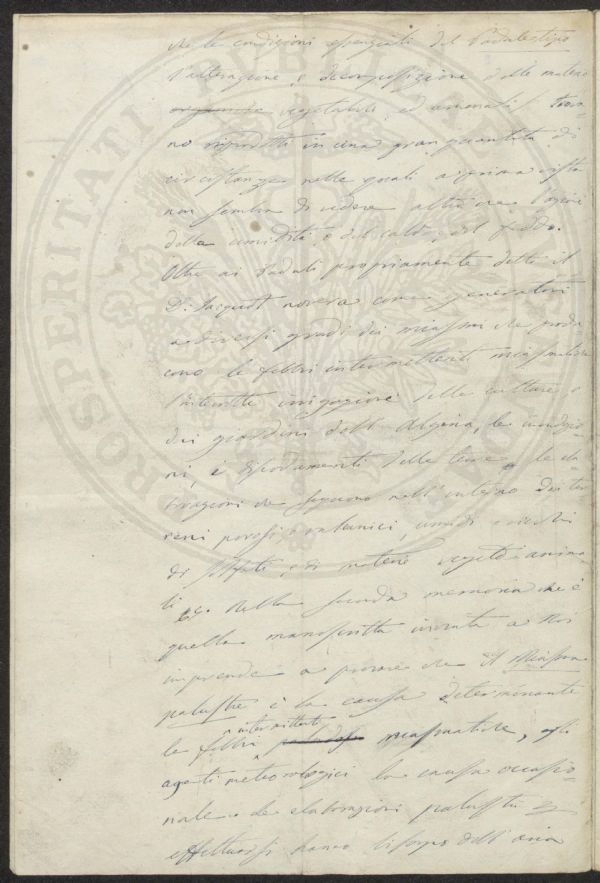 che le condizioni essenziali del Padule tipo
l'alterazione, e decomposizione delle materie
organiche vegetabili, ed animali si trova-
no riprodotti in una gran quantità di
circostanze nelle quali a prima vista
non sembra di vedere altro che l'azione
della umidità, e del caldo, e del freddo.
Oltre ai Paduli propriamente detti il
D. Jacquot novera come generatori
a diversi gradi dei miasmi che produ-
cono le febbri intermittenti miasmatiche
irrigazioni delle culture, e
dei giardini dell'Algeria, le inondazio-
ni, i dissodamenti delle terre, le
che seguono nell'interno dei ter-
reni porosi, e vulcanici, umidi e ricchi
di solfati, e di materie vegeto-anima-
li &c. Nella seconda memoria che è
quella manoscritta inviata a Noi
imprende a provare che il Miasma
palustre è la causa determinante
le febbri intermittenti miasmatiche, e gli
agenti meteorologici la causa occasio-
nale. Le elaborazioni palustri
effettuarsi hanno bisogno dell'aria
PROSPERITATI PUBLICAE